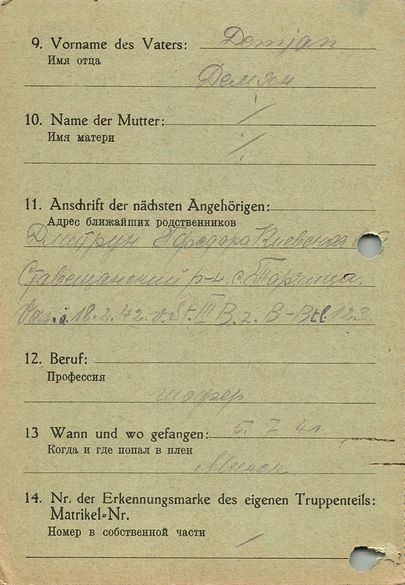 9. Vorname des Vaters: Demjan
Имя отца
Демян
10. Name der Mutter: /
Имя матери
/
11. Anschrift der nächsten Angehörigen:
Адрес ближайших родственников
Дмитрун Киевская
р-н. с.
18.2.42 v. St. III B. z. B-Btl. 123
12. Beruf:
Профессия
шофер
13 Wann und wo gefangen: 5. 7. 41
Когда и где попал в плен
Минск
14. Nr. der Erkennungsmarke des eigenen Truppenteils:
Matrikel=Nr.
Номер в собственной части /